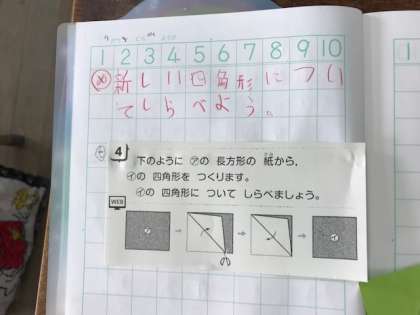 1 2 3 4 5 6 7 8 9 10
め 新しい四角形につい
てしらべよう。
4 下のように ㋐の 長方形の 紙から、
㋑の 四角形を つくります。
㋑の 四角形に ついて しらべましょう。
WEB
㋐ ㋑